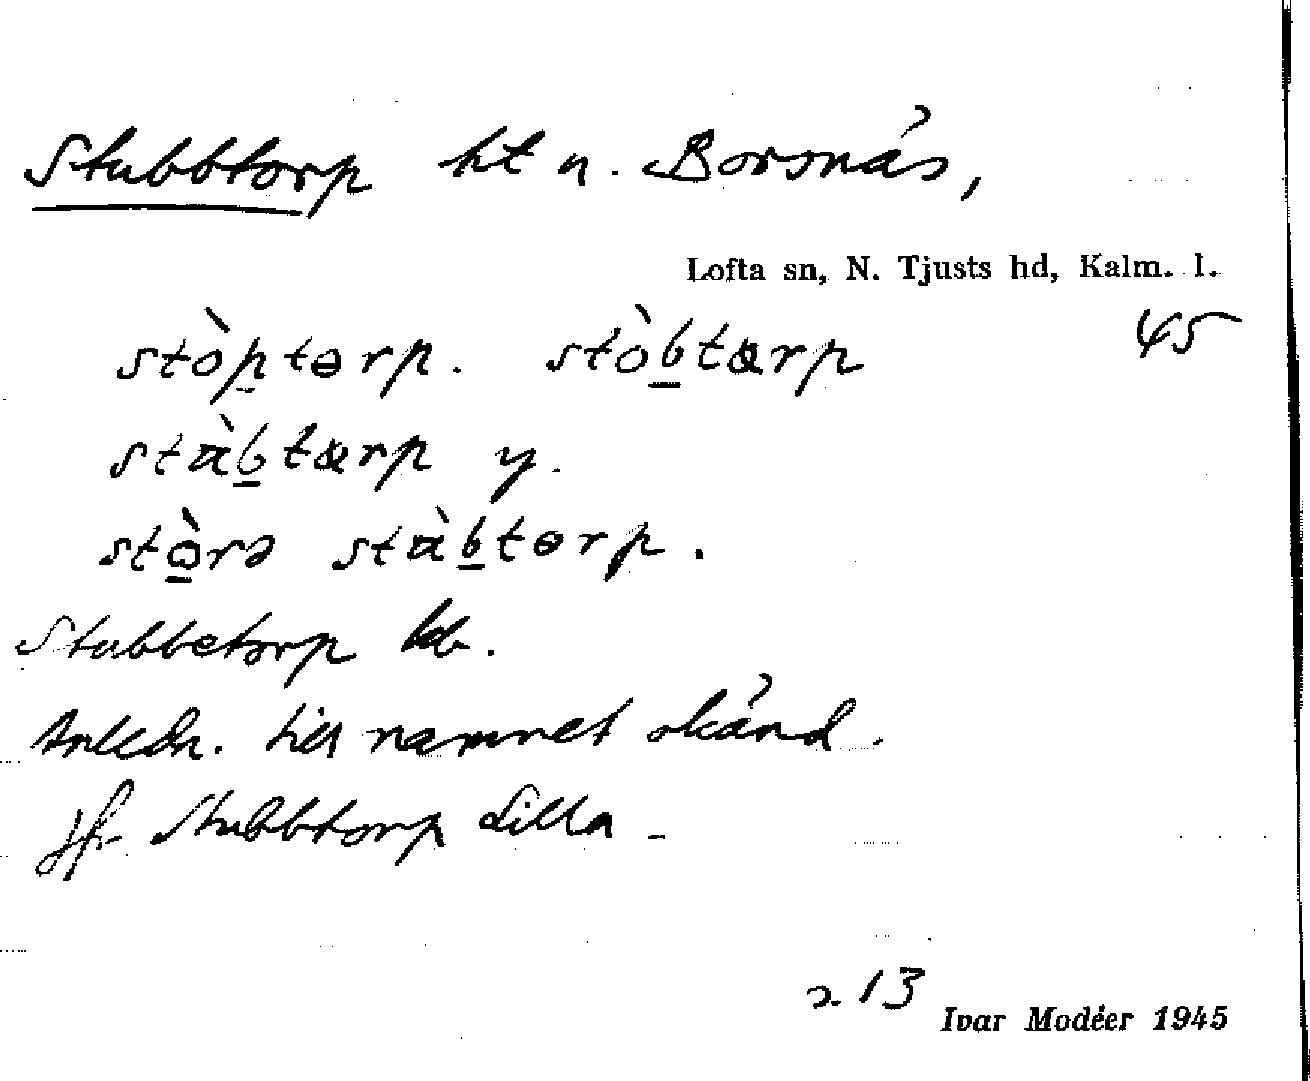 Stubbtorp ht n. Borsnäs,
Lofta sn, N. Tjusts hd, Kalm. l.
45
stòp̲tɵrp. stòb̲tærp
stàb̲tærp y.
stò̲rə stàb̲tɵrp.
Stubbetorp kb.
Anledn. till namnet okänd.
Jfr Stubbtorp Lilla
213
Ivar Modéer 1945